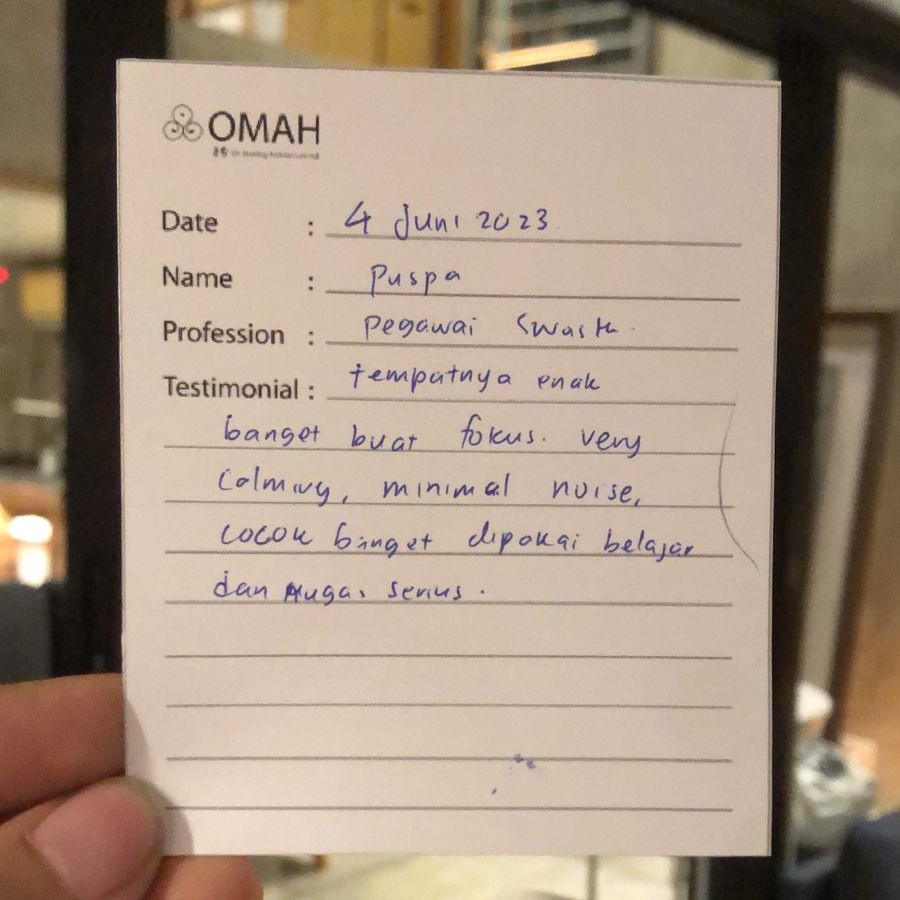 OMAH
Date : 4 Juni 2023
Name : Puspa
Profession : Pegawai Swasta
Testimonial : tempatnya enak
banget buat fokus. very
calming, minimal noise,
cocok banget dipakai belajar
dan nugas serius.